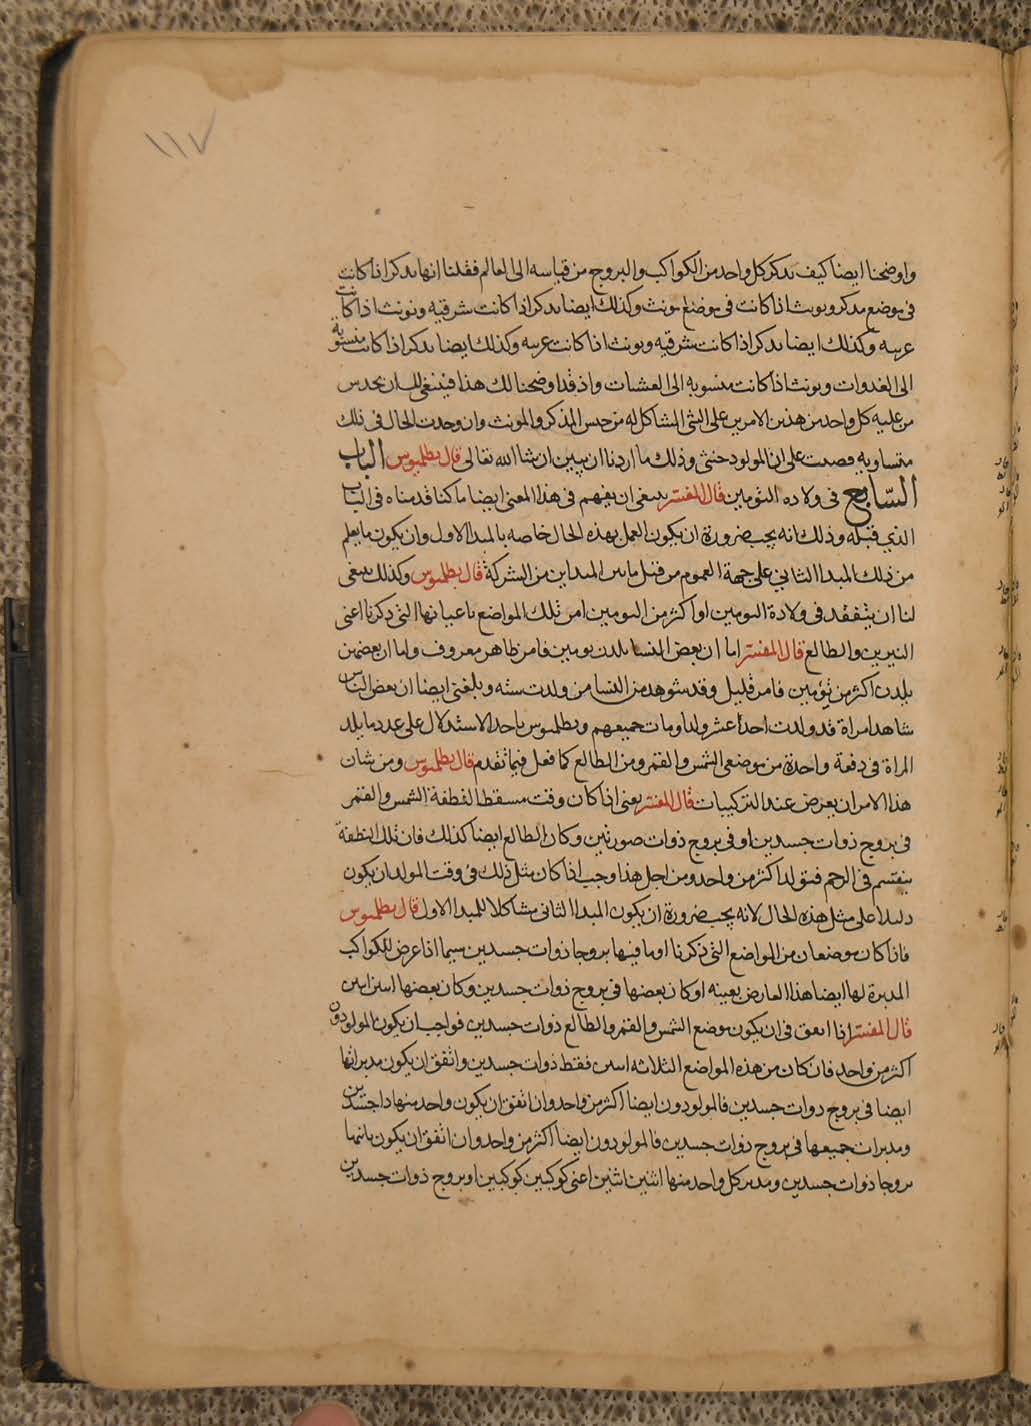 ١١٧
واوضحنا ايضا كيف تدكر كل واحد من الكواكب والبروج من قياسه الى العالم فقلنا انها تدكر اذا كانت
فى موضع مدكر وتونث اذا كانت فى موضع مونث وكذلك ايضا تدكر اذا كانت شرقيه وتونث اذا كانت
غربيه وكذلك ايضا تدكر اذا كانت شرقيه وتونث اذا كانت غربيه وكذلك ايضا تدكر اذا كانت منسوبه
الى الغدوات وتونث اذا كانت منسوبه الى العشيات واذ قد اوضحنا لك هذا فينبغى لك ان تحدس
من غلبه كل واحد من هذين الامرين على الشى المشاكل له من جنس المذكر والمونث وان وجدت الحال فى ذلك
متساويه قضيت على ان المولود خنثى وذلك ما اردنا ان نبين ان شا الله تعالى قال بطلميوس الباب
السّابع فى ولاده التومين قال المفسر ينبغى ان يفهم فى هذا المعنى ايضا ما كنا قدمناه فى الباب
الذي قبله وذلك انه يجب ضرورة ان يكون العمل بهذه الحال خاصه بالمبدا الاول وان يكون ما يعلم
من ذلك المبدا الثاني على جهة العموم من قبل ما بين المبداين من الشركة قال بطلميوس وكذلك ينبغى
لنا ان يتفقد فى ولادة التومين او اكثر من التومين امر تلك المواضع باعيانها التى ذكرنا اعنى
النيرين والطالع قال المفسر اما ان بعض النسا يلدن تومين فامر ظاهر معروف واما ان بعضهن
يلدن اكثر من تؤمين فامر قليل وقد شوهد من النسا من ولدت سته وبلغنى ايضا ان بعض الناس
شاهد امراة قد ولدت احدا عشر ولدا ومات جميعهم وبطلميوس ياخذ الاستدلال على عدد ما يلد
المراة فى دفعة واحدة من موضعى الشمس والقمر ومن الطالع كما فعل فيما تقدم قال بطلميوس ومن شان
هذا الامر ان يعرض عند التركيبات قال المفسر يعنى اذا كان وقت مسقط النطفة الشمس والقمر
فى بروج ذوات جسدين او فى بروج ذوات صورتين وكان الطالع ايضا كذلك فان تلك النطفة
ينقسم فى الرحم فيتولد اكثر من واحد ومن اجل هذا وجب اذا كان مثل ذلك فى وقت المولد ان يكون
دليلا على مثل هذه الحال لانه يجب ضرورة ان يكون المبدا الثانى مشاكلا للمبدا الاول قال بطلميوس
فاذا كان موضعان من المواضع التى ذكرنا او ما فيها بروجا ذوات جسدين سيما اذا عرض للكواكب
المدبرة لها ايضا هذا العارض بعينه او كان بعضها فى بروج ذوات جسدين وكان بعضها اثنين اثنين
قال المفسر اذا اتفق فى ان يكون موضع الشمس والقمر والطالع ذوات جسدين فواجب ان يكون المولودون
اكثر من واحد فان كان من هذه المواضع الثلاثه اثنين فقط ذوات جسدين واتفق ان يكون مدبراتها
ايضا فى بروج دوات جسدين فالمولودون ايضا اكثر من واحد وان اتفق ان يكون واحد منها ذا جسدين
ومدبرات جميعها فى بروج ذوات جسدين فالمولودون ايضا اكثر من واحد وان اتفق ان يكون
بروجا ذوات جسدين ومدبر كل واحد منها اثنين اثنين اعنى كوكبين كوكبين او بروج ذوات جسدين